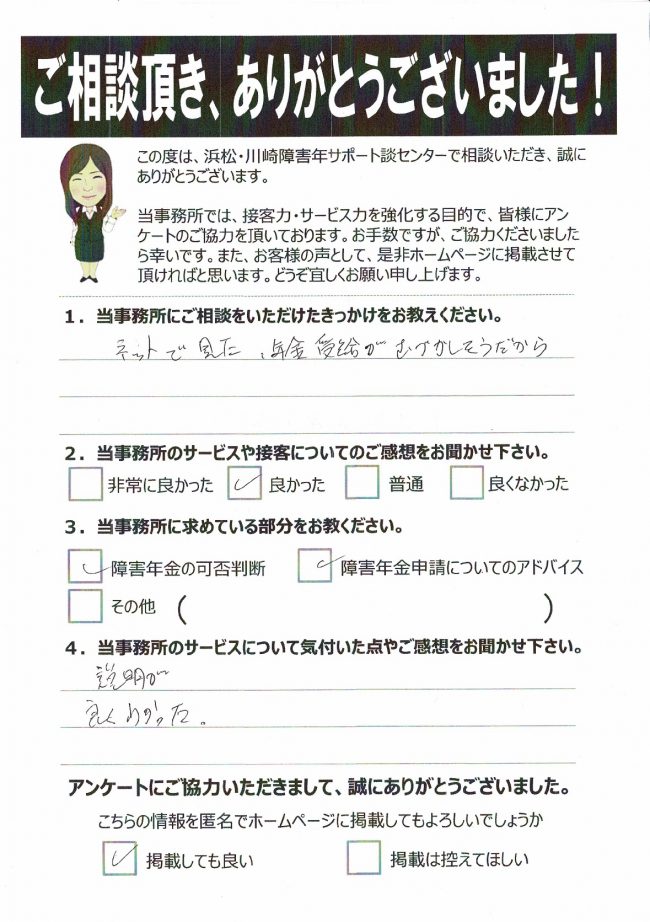 ご相談頂き、ありがとうございました！
この度は、浜松・川崎障害年サポート談センターで相談いただき、誠に
ありがとうございます。
当事務所では、接客力・サービス力を強化する目的で、皆様にアン
ケートのご協力を頂いております。お手数ですが、ご協力くださいました
ら幸いです。また、お客様の声として、是非ホームページに掲載させて
頂ければと思います。どうぞ宜しくお願い申し上げます。
１．当事務所にご相談をいただけたきっかけをお教えください。
ネットで見た、年金受給がむづかしそうだから
２．当事務所のサービスや接客についてのご感想をお聞かせ下さい。
非常に良かった 良かった 普通 良くなかった
３．当事務所に求めている部分をお教ください。
障害年金の可否判断 障害年金申請についてのアドバイス
その他 （ ）
４．当事務所のサービスについて気付いた点やご感想をお聞かせ下さい。
説明が
良くわかった。
アンケートにご協力いただきまして、誠にありがとうございました。
こちらの情報を匿名でホームページに掲載してもよろしいでしょうか
掲載しても良い 掲載は控えてほしい